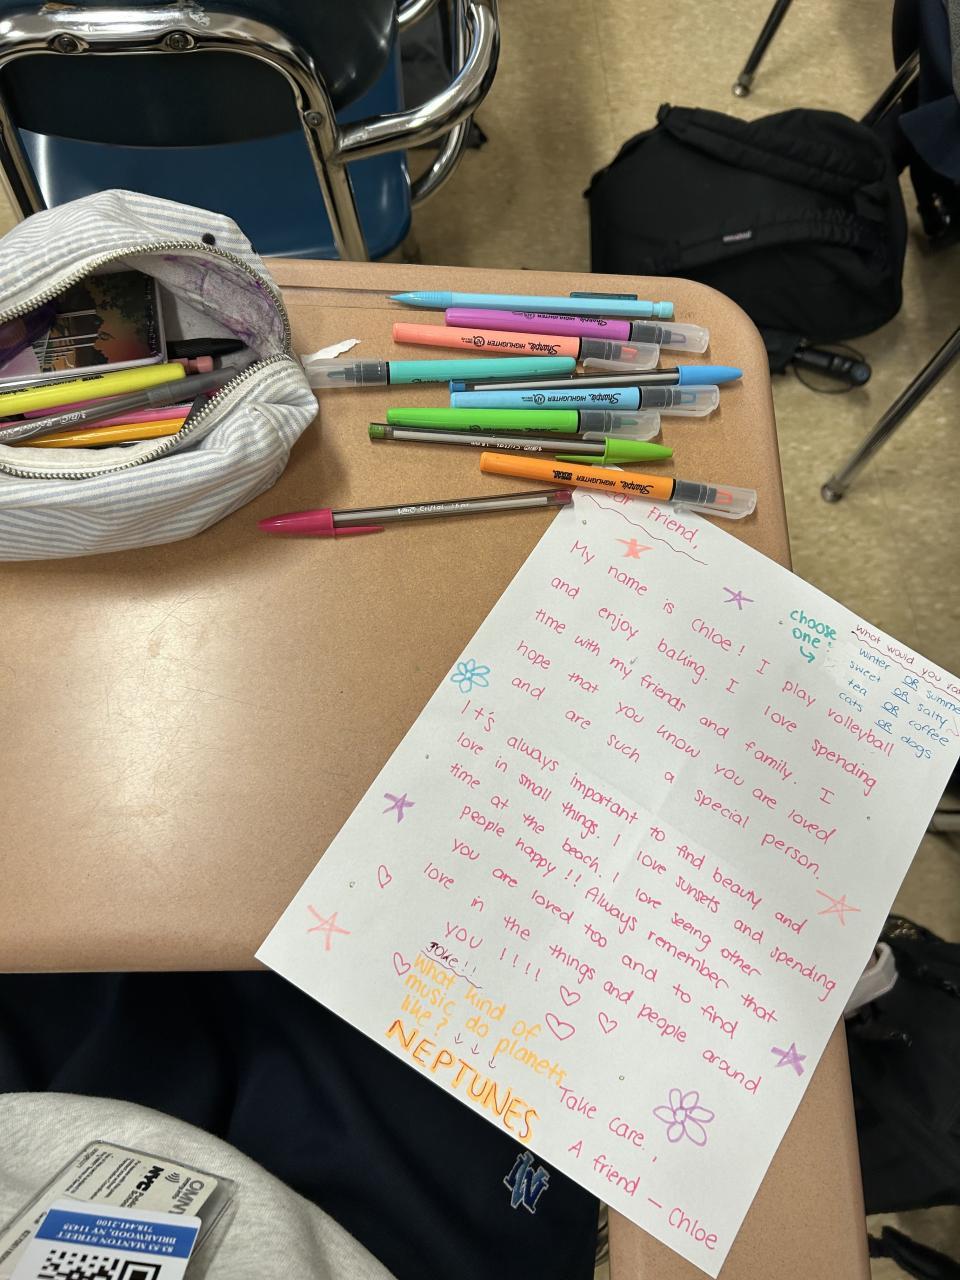 Sharpie HIGHLIGHTER
Sharpie HIGHLIGHTER
Sharpie HIGHLIGHTER
Sharpie HIGHLIGHTER
Cristal
Cristal
Friend,
My name is Chloe! I play volleyball
and enjoy baking. I love spending
time with my friends and family. I
hope that you know you are loved
and are such a special person.
It's always important to find beauty and
love in small things. I love sunsets and spending
time at the beach. I love seeing other
people happy!! Always remember that
you are loved too and to find
love in the things and people around
you !!!!
choose
one:
what would you
winter OR
sweet OR salty
tea OR coffee
cats OR dogs
Joke!!
What kind of
music do planets
like?
NEPTUNES
Take care,
A friend — Chloe
OMNY
NYC
83-53 MANTON STREET
BRIARWOOD, NY 11435
718.441.2100